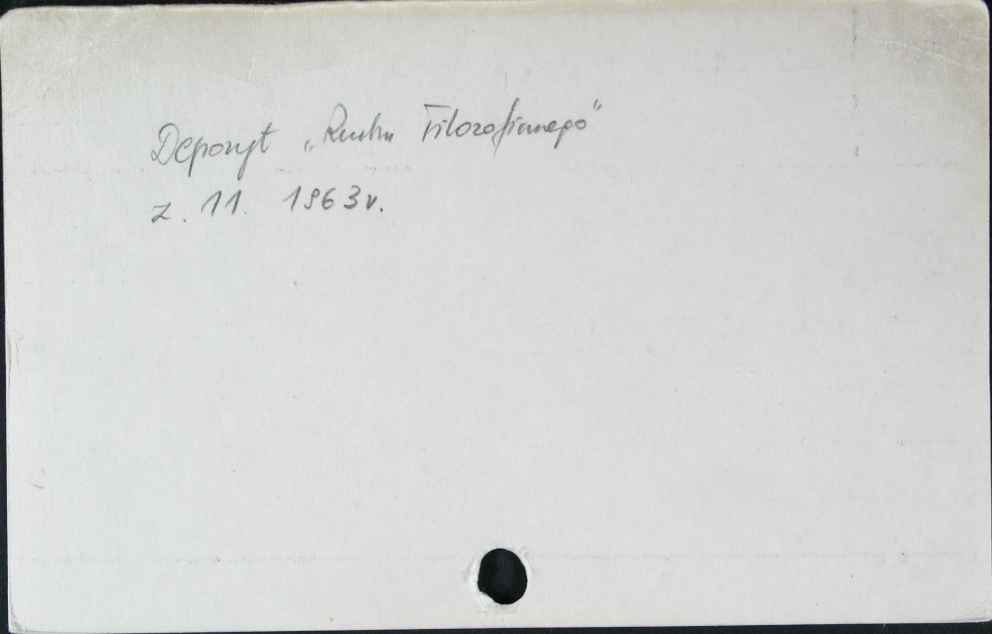 Depozyt „Ruchu Filozoficznego"
z. 11. 1963 r.